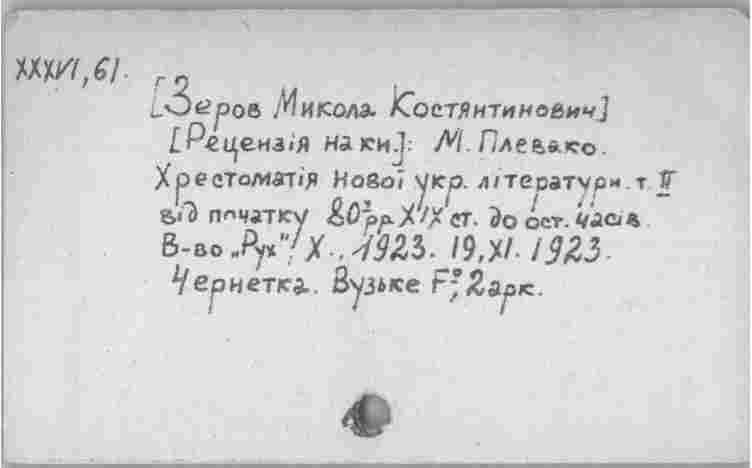 XXXVI, 61.
[Зеров Микола Костянтинович]
[Рецензія на кн.]: М. Плевако.
Хрестоматія нової укр. літератури. т. II
від початку 80х рр XIX ст. до ост. часів.
В-во „Рух", Х., 1923. 19, XI. 1923.
Чернетка. Вузьке F°, 2 арк.